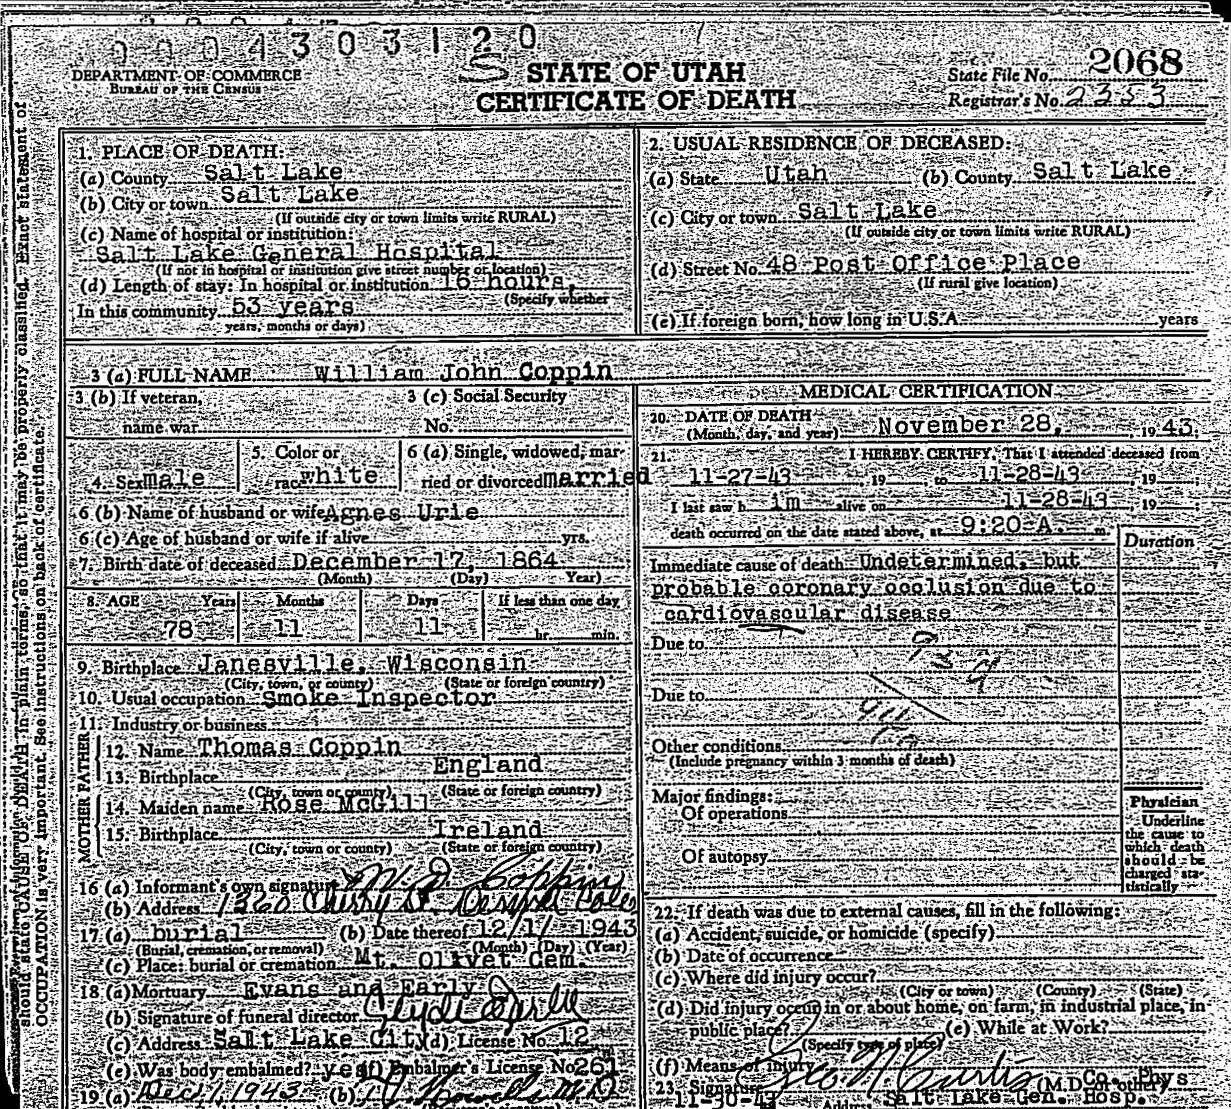 0004303120
DEPARTMENT OF COMMERCE
BUREAU OF THE CENSUS
STATE OF UTAH
CERTIFICATE OF DEATH
State File No. 2068
Registrar's No. 2353
1. PLACE OF DEATH:
(a) County Salt Lake
(b) City or town Salt Lake
(If outside city or town limits write RURAL)
(c) Name of hospital or institution:
Salt Lake General Hospital
(If not in hospital or institution give street number or location)
(d) Length of stay: In hospital or institution 16 hours,
(Specify whether
In this community 53 years
years, months or days)
2. USUAL RESIDENCE OF DECEASED:
(a) State Utah (b) County Salt Lake
(c) City or town Salt Lake
(If outside city or town limits write RURAL)
(d) Street No. 48 Post Office Place
(If rural give location)
(e) If foreign born, how long in U.S.A. years
3 (a) FULL NAME William John Coppin
3 (b) If veteran,
name war
3 (c) Social Security
No.
4. Sex male
5. Color or
race white
6 (a) Single, widowed, mar-
ried or divorced married
6 (b) Name of husband or wife Agnes Urie
6 (c) Age of husband or wife if alive yrs.
7. Birth date of deceased December 17, 1864
(Month) (Day) Year)
8. AGE Years Months Days If less than one day
78 11 11 hr. min.
9. Birthplace Janesville, Wisconsin
(City, town, or county) (State or foreign country)
10. Usual occupation Smoke Inspector
11. Industry or business
FATHER
12. Name Thomas Coppin
13. Birthplace England
(City, town or county) (State or foreign country)
MOTHER
14. Maiden name Rose McGill
15. Birthplace Ireland
(City, town or county) (State or foreign country)
16 (a) Informant's own signature W. D. Coppin
(b) Address 1360 Cherry St. Denver Colo
17 (a) burial (b) Date thereof 12/1/ 1943
(Burial, cremation, or removal) (Month) (Day) (Year)
(c) Place: burial or cremation Mt. Olivet Cem.
18 (a) Mortuary Evans and Early
(b) Signature of funeral director Clyde Early
(c) Address Salt Lake City (d) License No. 12
(e) Was body embalmed? yes (f) Embalmer's License No. 261
19 (a) Dec. 1, 1943 (b) M.D.
MEDICAL CERTIFICATION
20. DATE OF DEATH
(Month, day, and year) November 28, 1943.
21. I HEREBY CERTIFY, That I attended deceased from
11-27-43, 19 , to 11-28-43, 19 ,
I last saw h im alive on 11-28-43, 19 ;
death occurred on the date stated above, at 9:20 A. m.
Duration
Immediate cause of death Undetermined, but
probable coronary occlusion due to
cardiovascular disease
Due to
Due to
Other conditions
(Include pregnancy within 3 months of death)
Major findings:
Of operations
Of autopsy
Physician
Underline
the cause to
which death
should be
charged sta-
tistically
22. If death was due to external causes, fill in the following:
(a) Accident, suicide, or homicide (specify)
(b) Date of occurrence
(c) Where did injury occur?
(City or town) (County) (State)
(d) Did injury occur in or about home, on farm, in industrial place, in
public place? (e) While at Work?
(Specify type of place)
(f) Means of injury
23. Signature Geo. N. Curtis (M.D. or other) Co. Phys
11-30-43 Address Salt Lake Gen. Hosp.
should state CAUSE OF DEATH in plain terms, so that it may be properly classified. Exact statement of
OCCUPATION is very important. See instructions on back of certificate.